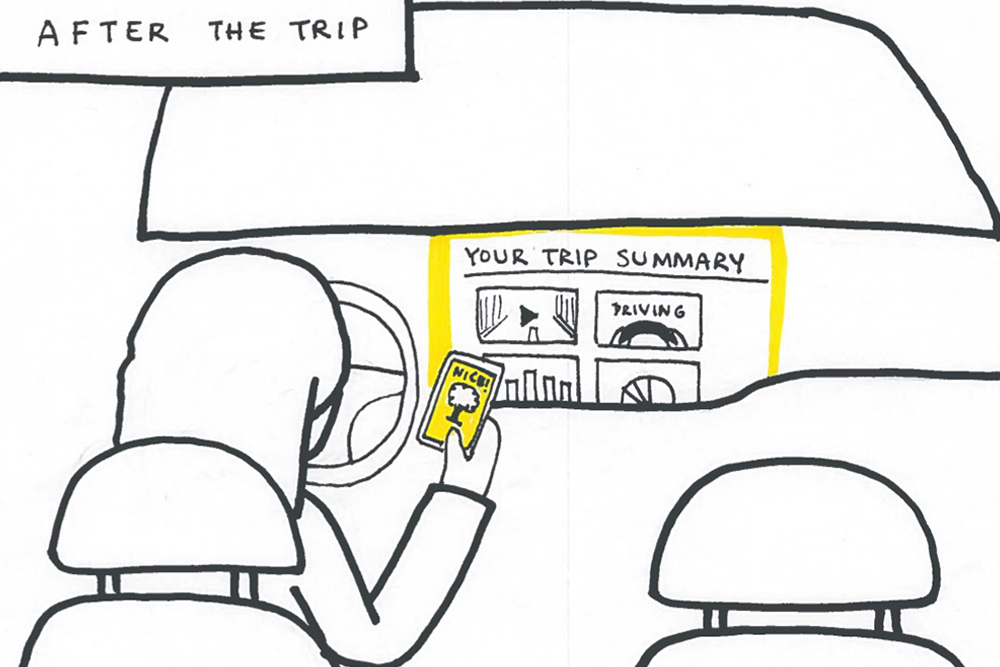 AFTER THE TRIP
YOUR TRIP SUMMARY
DRIVING
NICE!